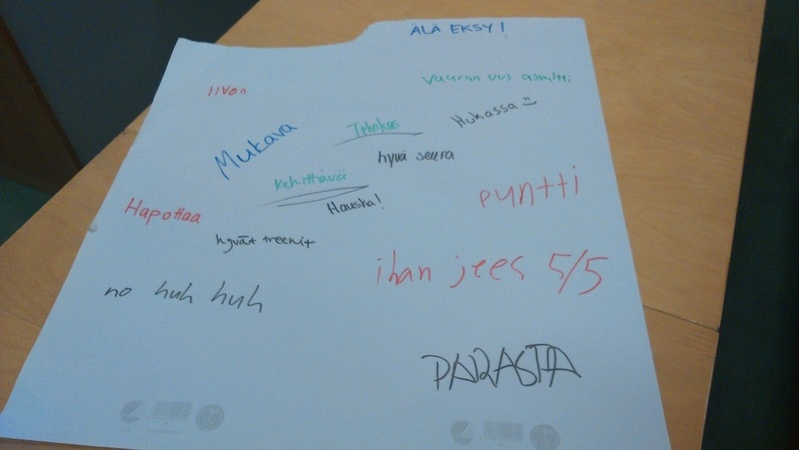 ÄLÄ EKSY!
iivoo
vaaran uus
Tehokas
Hukassa :)
Mukava
hyvä seura
Kehittävä
puntti
Hauska!
Hapottaa
hyvät treenit
ihan jees 5/5
no huh huh
PARASTA